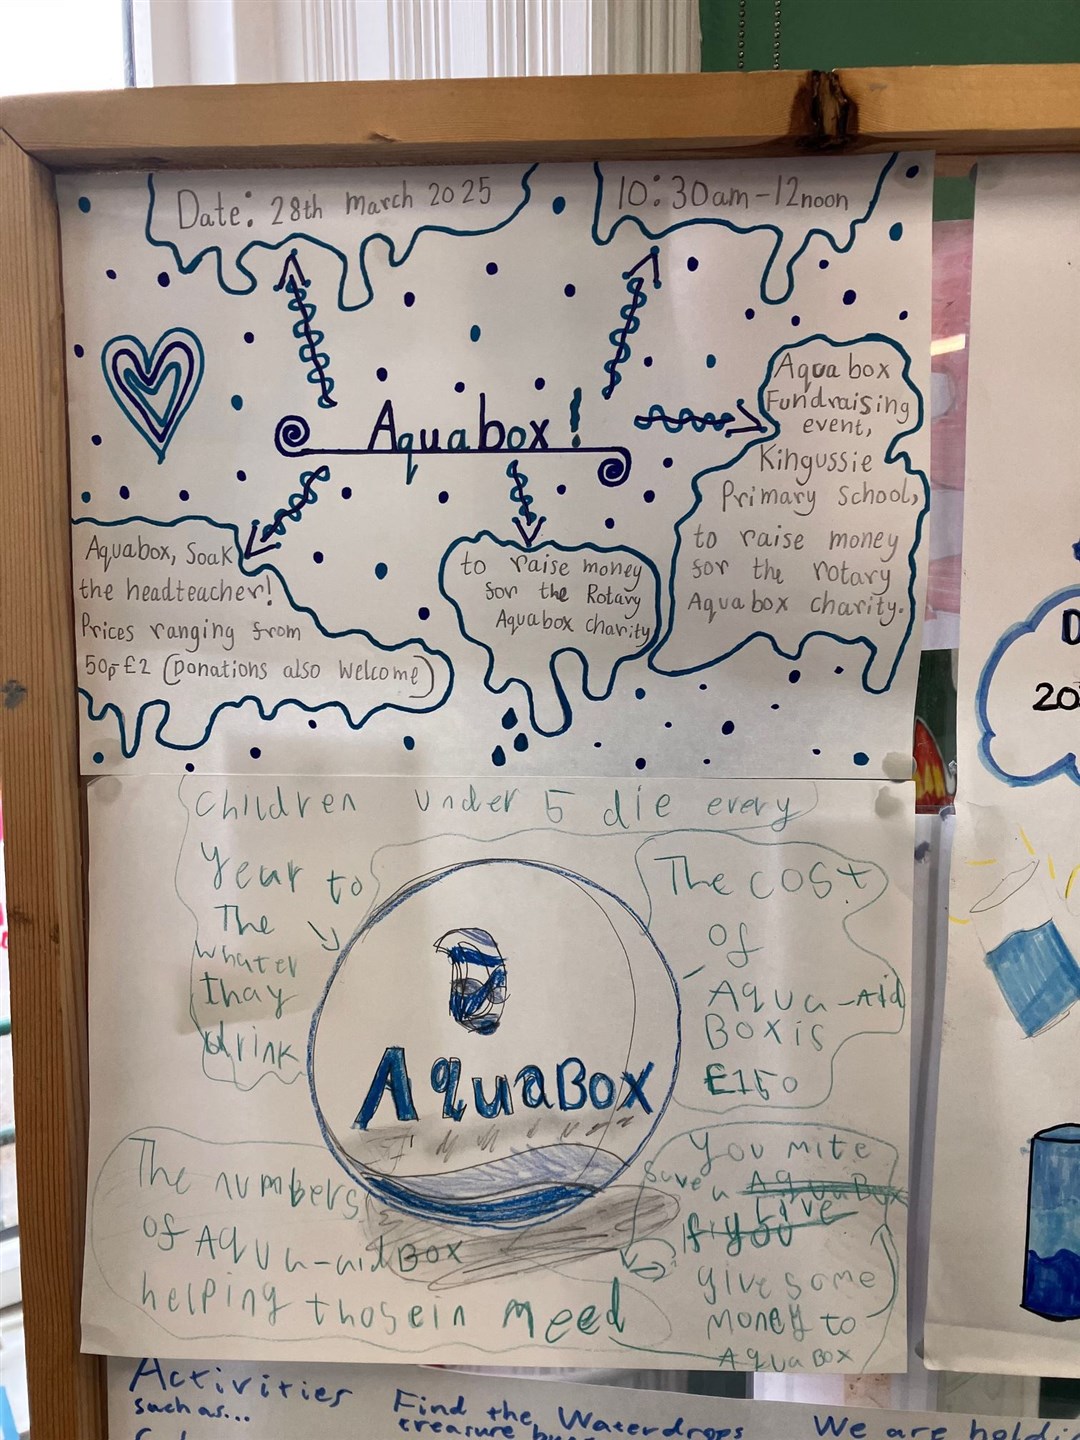 Date: 28th march 2025
10:30am-12noon
Aquabox!
Aquabox
Fundraising
event,
Kingussie
Primary School,
to raise money
for the rotary
Aquabox charity.
Aquabox, Soak
the headteacher!
Prices ranging from
50p-£2 (Donations also welcome)
to raise money
for the Rotary
Aquabox charity
children under 5 die every
Year to
The
whater
thay
drink
The cost
of
AQUa-Aid
BOX is
£150
AquaBox
The numbers
of AQUa-aid BOX
helping thosein meed
You mite
Save a AquaBox
Live
If you
give some
money to
AquaBox
Activities
such as...
Find the Waterdrops
treasure
We are
20